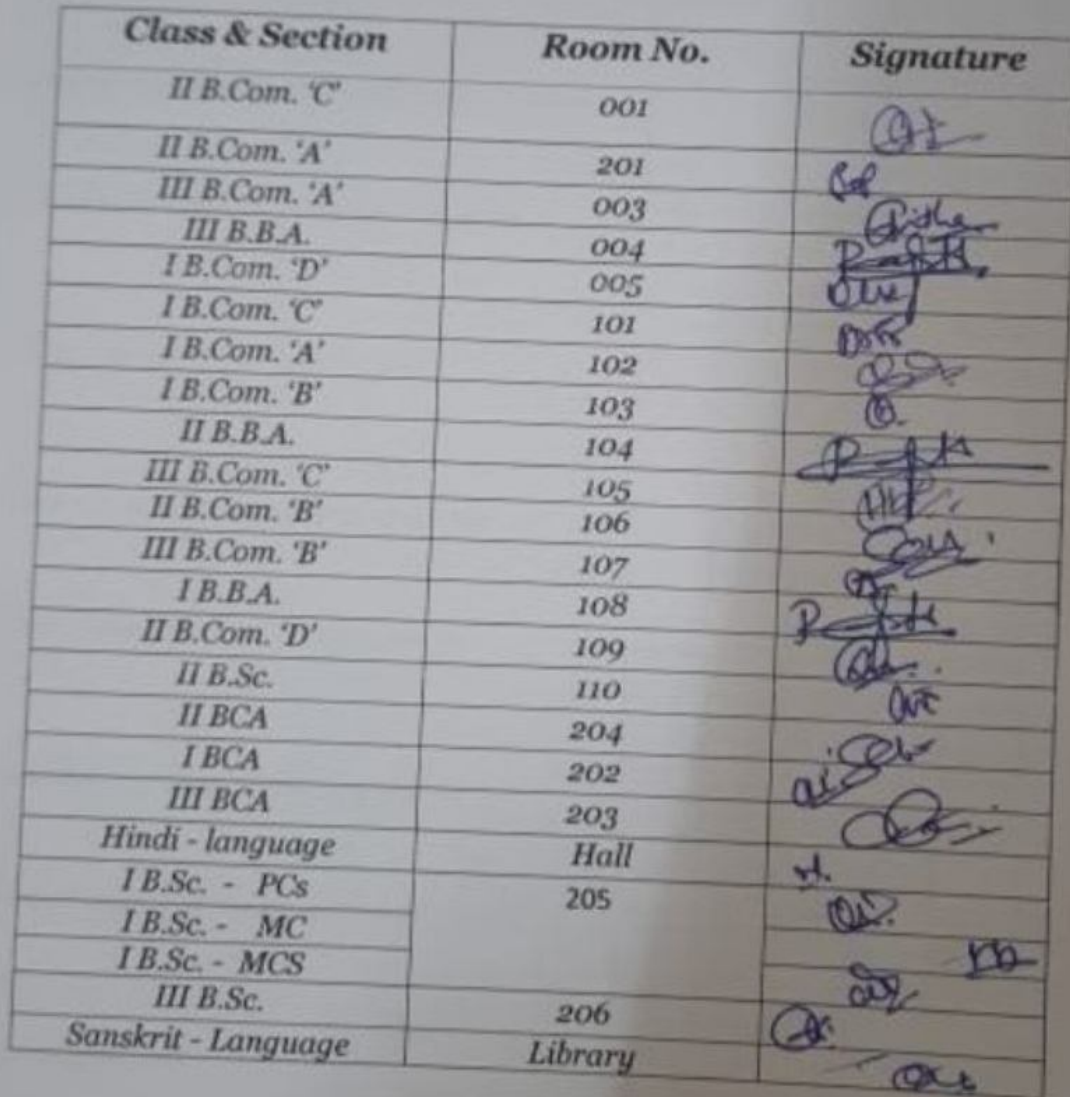 Class & Section Room No. Signature
II B.Com. 'C' 001
II B.Com. 'A' 201
III B.Com. 'A' 003
III B.B.A. 004
I B.Com. 'D' 005
I B.Com. 'C' 101
I B.Com. 'A' 102
I B.Com. 'B' 103
II B.B.A. 104
III B.Com. 'C' 105
II B.Com. 'B' 106
III B.Com. 'B' 107
I B.B.A. 108
II B.Com. 'D' 109
II B.Sc. 110
II BCA 204
I BCA 202
III BCA 203
Hindi - language Hall
I B.Sc. - PCs 205
I B.Sc. - MC
I B.Sc. - MCS
III B.Sc. 206
Sanskrit - Language Library